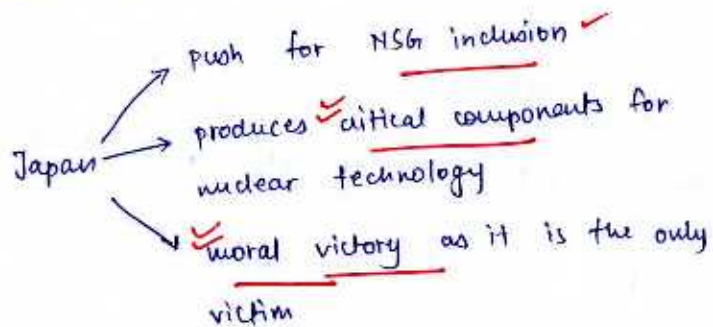 push for NSG inclusion
produces critical components for
Japan
nuclear technology
moral victory as it is the only
victim